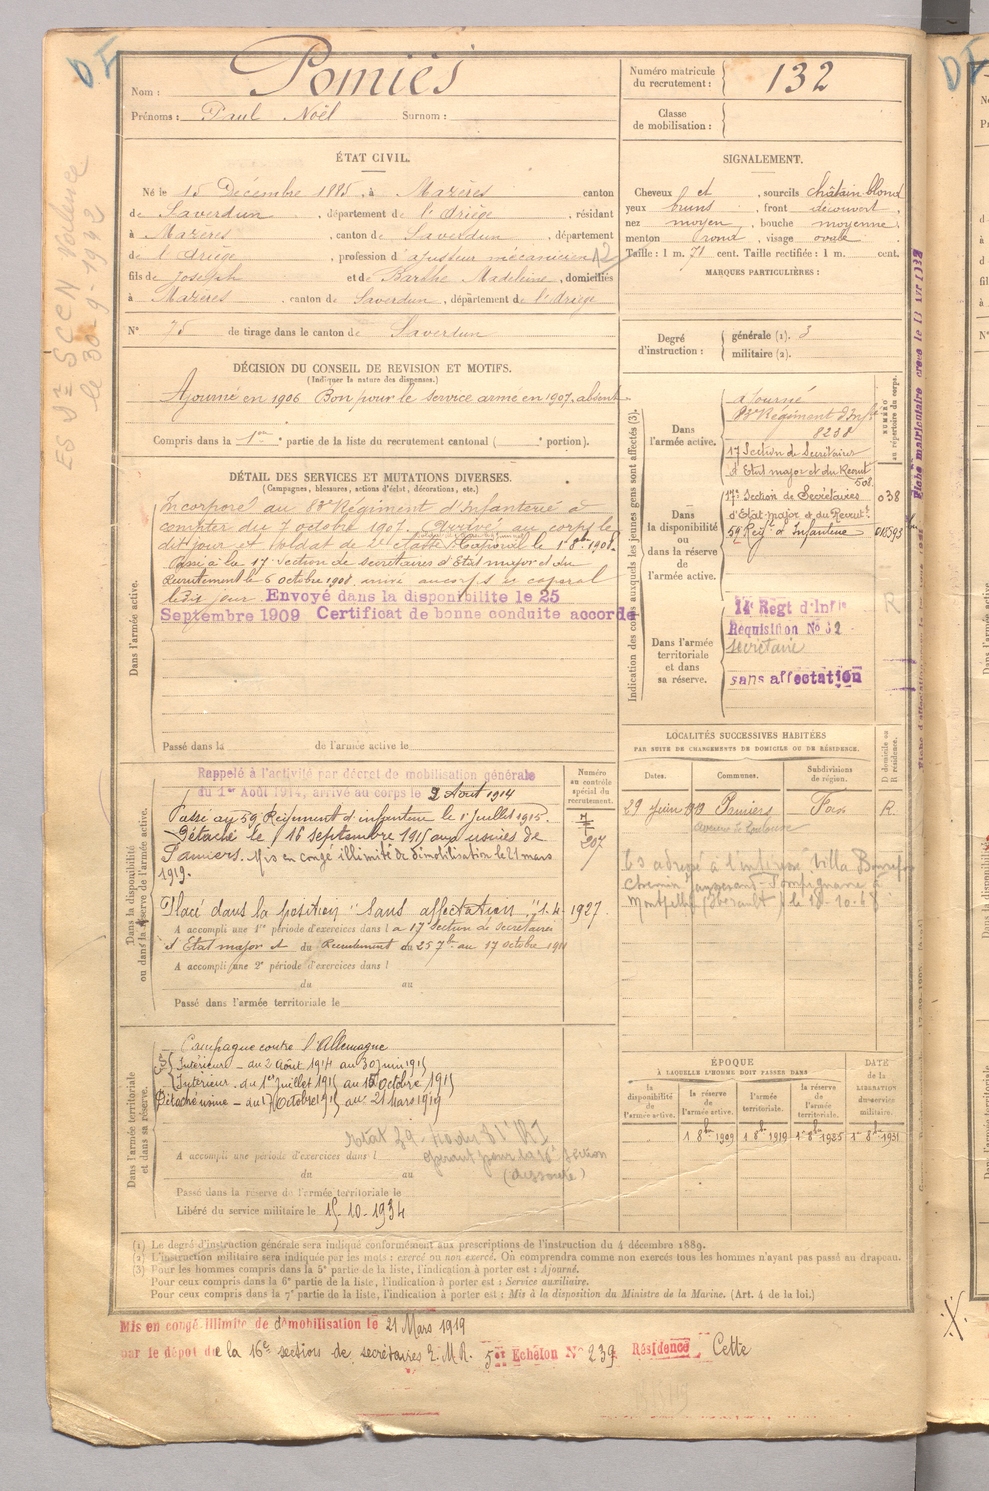 Nom : Pomiès
Prénoms : Paul Noël Surnom :
Numéro matricule du recrutement : 132
Classe de mobilisation :
ÉTAT CIVIL.
Né le 15 Décembre 1885, à Mazères canton
de Saverdun, département de l'Ariège, résidant
à Mazères, canton de Saverdun, département
de l'Ariège, profession d'ajusteur mécanicien
fils de Joseph et de Barthe Madeleine, domiciliés
à Mazères, canton de Saverdun, département de l'Ariège
N° 75 de tirage dans le canton de Saverdun
SIGNALEMENT.
Cheveux et, sourcils châtain blond
yeux bruns, front découvert,
nez moyen, bouche moyenne,
menton rond, visage ovale
Taille : 1 m. 71 cent. Taille rectifiée : 1 m. cent.
MARQUES PARTICULIÈRES :
Degré d'instruction : générale (1). 3
militaire (2).
DÉCISION DU CONSEIL DE REVISION ET MOTIFS.
(Indiquer la nature des dispenses.)
Ajourné en 1906 Bon pour le service armé en 1907, absent
Compris dans la 1ère partie de la liste du recrutement cantonal ( e portion).
DÉTAIL DES SERVICES ET MUTATIONS DIVERSES.
(Campagnes, blessures, actions d'éclat, décorations, etc.)
Dans l'armée active.
Incorporé au 83e Régiment d'Infanterie à
compter du 7 octobre 1907. Arrivé au corps le
dit jour et soldat de 2e classe. Caporal le 1 8bre 1908.
Passé à la 17 section de secrétaires d'Etat major et du
Recrutement le 6 octobre 1908, arrivé au corps et caporal
le dit jour Envoyé dans la disponibilité le 25
Septembre 1909 Certificat de bonne conduite accordé
Passé dans la de l'armée active le
Indication des corps auxquels les jeunes gens sont affectés (3).
NUMÉRO au répertoire du corps.
Dans l'armée active.
ajourné
83e Régiment d'Inf.
8238
17 Section de Secrétaires
d'Etat major et du Recrut
508
Dans la disponibilité ou dans la réserve de l'armée active.
17e Section de Secrétaires 038
d'Etat major et du Recrut.
59 Régt d'Infanterie 010593
Dans l'armée territoriale et dans sa réserve.
14e Regt d'Infie R
Réquisition No 32
secrétaire
sans affectation
LOCALITÉS SUCCESSIVES HABITÉES
PAR SUITE DE CHANGEMENTS DE DOMICILE OU DE RÉSIDENCE.
Dates. Communes. Subdivisions de région. D domicile ou R résidence.
29 Juin 1912 Pamiers Foix R.
Dans la disponibilité ou dans la réserve de l'armée active.
Numéro au contrôle spécial du recrutement.
Rappelé à l'activité par décret de mobilisation générale
du 1er Août 1914, arrivé au corps le 2 Août 1914
Passé au 59 Régiment d'infanterie le 1 juillet 1915.
Détaché le 16 septembre 1915 aux usines de
Pamiers. Mis en congé illimité de démobilisation le 21 mars
1919.
207
Placé dans la position "sans affectation" 1.4-1927.
A accompli une 1re période d'exercices dans la 17 section de secrétaires
d'Etat major et du Recrutement du 25 7bre au 17 octobre 1911
A accompli une 2e période d'exercices dans l
du au
Passé dans l'armée territoriale le
adressé à l'intéressé Villa
Chemin
Montpellier (Hérault) le
Dans l'armée territoriale et dans sa réserve.
Campagne contre l'Allemagne
Intérieur - du 2 août 1914 au 30 juin 1915
Intérieur - du 1er juillet 1915 au 16 Octobre 1915
Détaché usine - du 17 Octobre 1915 au 21 Mars 1919
A accompli une période d'exercices dans l
du au
Passé dans la réserve de l'armée territoriale le
Libéré du service militaire le 15-10-1934
ÉPOQUE
À LAQUELLE L'HOMME DOIT PASSER DANS
la disponibilité de l'armée active. la réserve de l'armée active. l'armée territoriale. la réserve de l'armée territoriale.
DATE de la LIBÉRATION du service militaire.
1 8bre 1909 1 8bre 1919 1er 8bre 1925 1er 8bre 1931
(1) Le degré d'instruction générale sera indiqué conformément aux prescriptions de l'instruction du 4 décembre 1889.
(2) L'instruction militaire sera indiquée par les mots : exercé ou non exercé. On comprendra comme non exercés tous les hommes n'ayant pas passé au drapeau.
(3) Pour les hommes compris dans la 5e partie de la liste, l'indication à porter est : Ajourné.
Pour ceux compris dans la 6e partie de la liste, l'indication à porter est : Service auxiliaire.
Pour ceux compris dans la 7e partie de la liste, l'indication à porter est : Mis à la disposition du Ministre de la Marine. (Art. 4 de la loi.)
Mis en congé illimité de démobilisation le 21 Mars 1919
par le dépôt de la 16e section de secrétaires E.M.R. 5e Echelon No 239 Résidence Cette